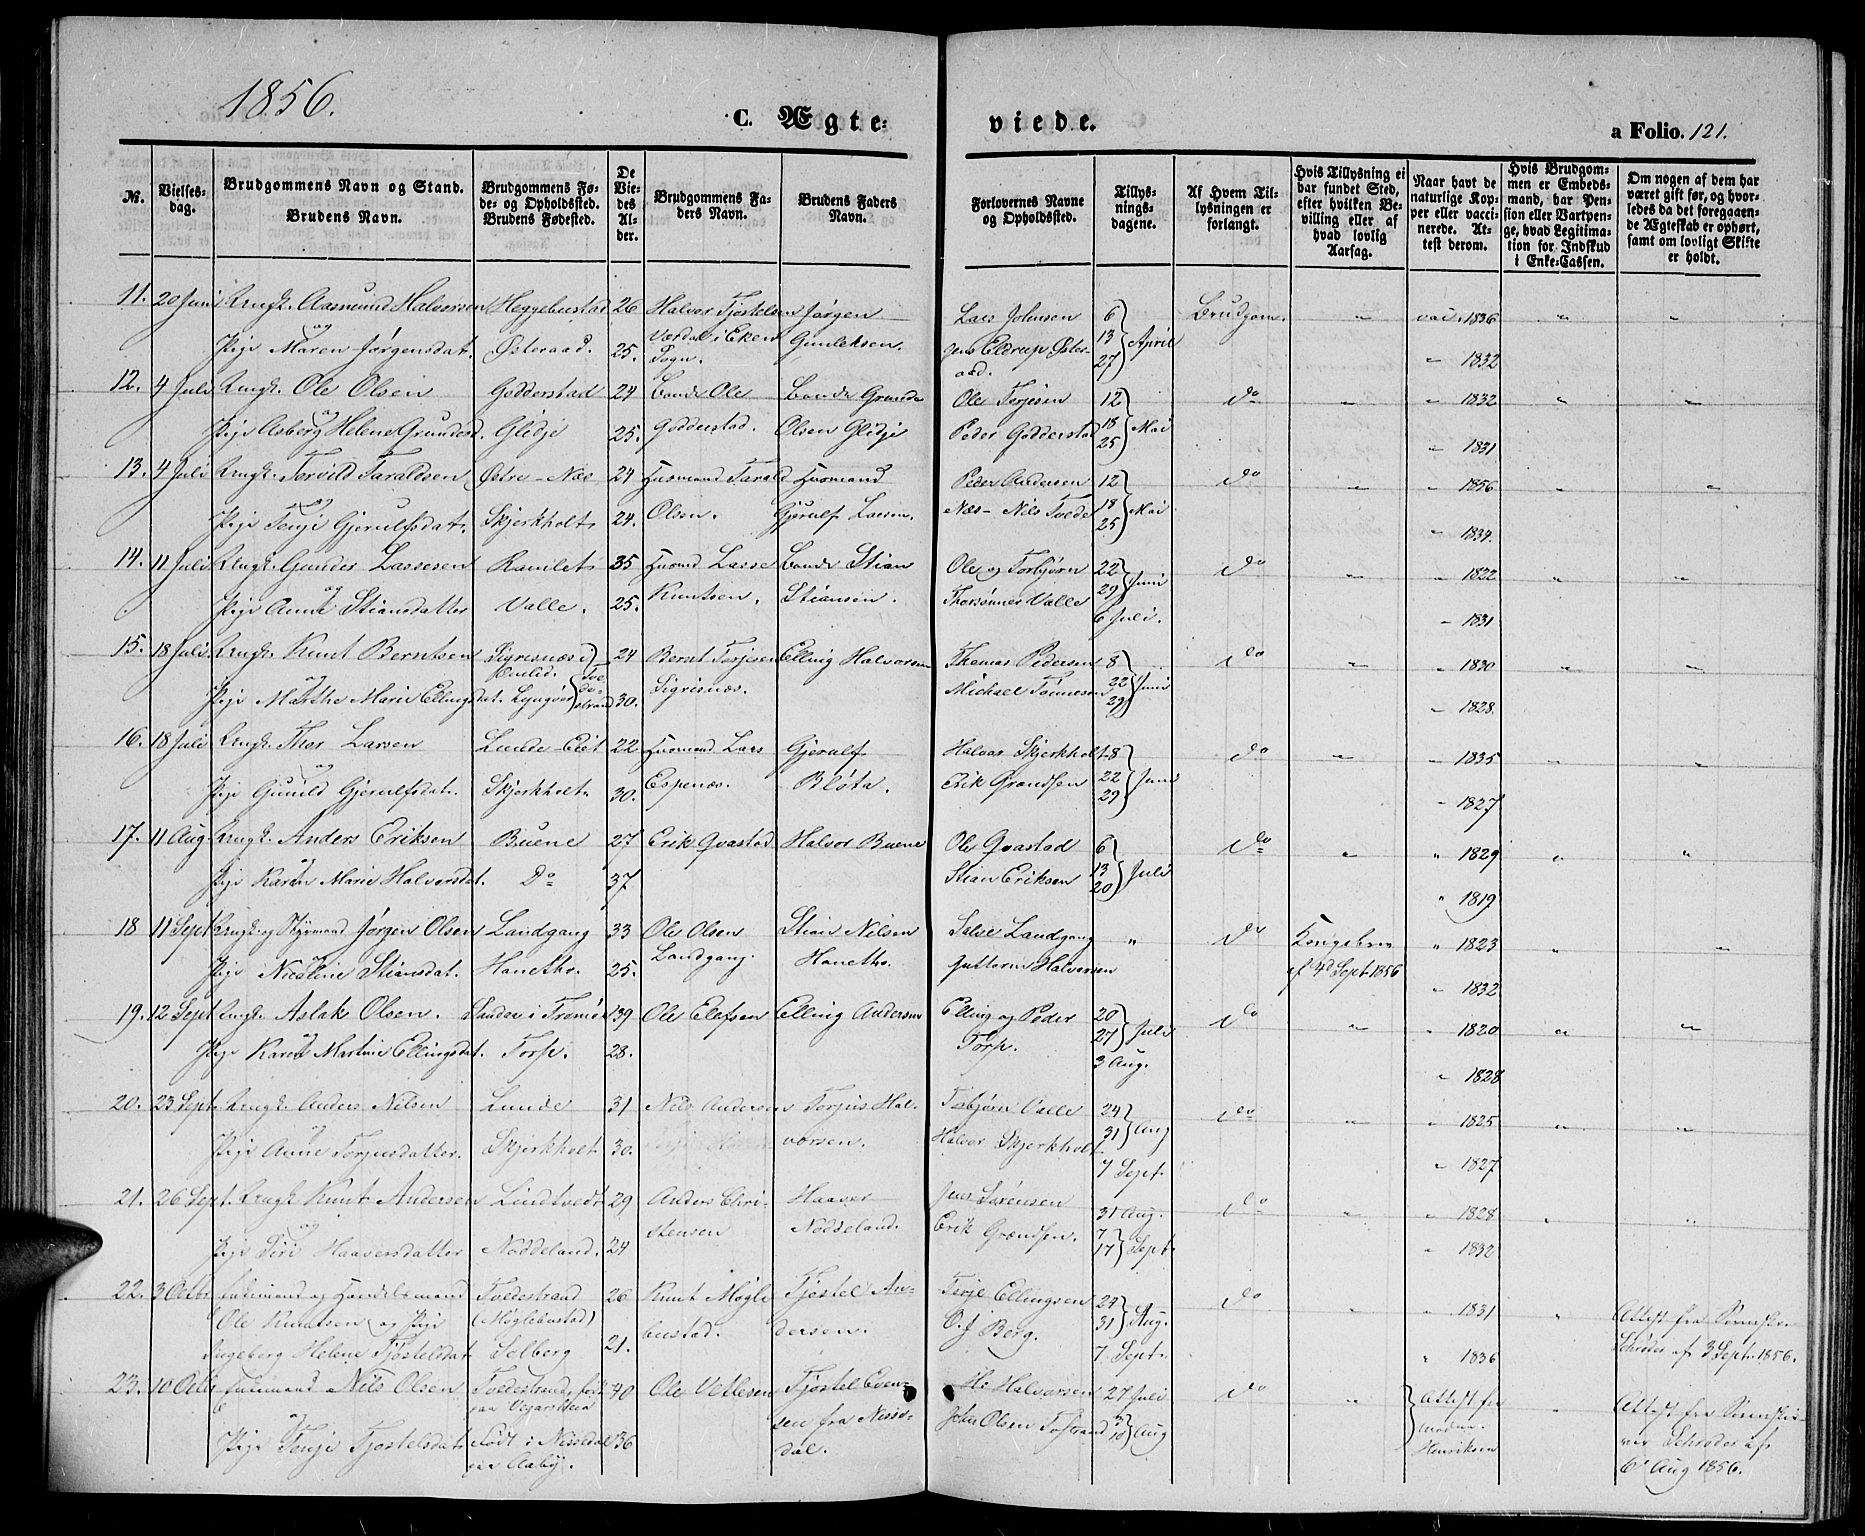 1856.
C. Ægte-
viede.
a Folio. 121.
№.
Vielses-dag.
Brudgommens Navn og Stand. Brudens Navn.
Brudgommens Fø-de- og Opholdssted. Brudens Fødested.
De Vie-des Al-der.
Brudgommens Fa-ders Navn.
Brudens Faders Navn.
Forlovernes Navne og Opholdssted.
Tillys-nings-dagene.
Af Hvem Til-lysningen er forlangt.
Hvis Tillysning ei har fundet Sted, efter hvilken Be-villing eller af hvad lovlig Aarsag.
Naar havt de naturlige Kop-per eller vacci-nerede. At-test derom.
Hvis Brudgom-men er Embeds-mand, har Pen-sion eller Vartpen-ge, hvad Legitima-tion for Indskud i Enke-Cassen.
Om nogen af dem har været gift før, og hvor-ledes da det foregaaen-de Ægteskab er ophørt, samt om lovligt Skifte er holdt.
11. 20 Juni Ungk. Aasmund Halvorsen Heggebustad 26 Halvor Tjostelsen Jørgen Lars Johnsen 6 Brudgom. " vac. 1836 " "
og Værdal i Eken 13 April
Pige Maren Jørgensdat. Østeraad. 25. Sogn. Gunleksen. Jens Eldrup Øster- 27 " 1832
aad.
12. 4 Juli Ungk. Ole Olsen Godderstad 24 Bonde Ole Bonde Grunde Ole Terjesen 12 Do " " 1832 " "
og 18 Mai
Pige Asberg Helene Grundesd. Glidje 25. Godderstad. Olsen Glidje Peder Godderstad 25 " 1831
13. 4 Juli Ungk. Torvild Taraldsen Østre-Næs 24 Husmand Tarald Husmand Peder Andersen 12 Do " " 1856 " "
og 18 Mai
Pige Tonje Gjerulfsdat. Skjerkholt 24. Olsen. Gjerulf Larsen. Næs- Nils Tvede 25 " 1834.
14. 11 Juli Ungk. Gunder Lassesen Ramlet 35 Husmd Lasse Bonde Stian Ole og Torbjørn 22 Do " " 1822 " "
og 29 Juni
Pige Anne Stiansdatter Valle. 25. Knutsen. Stiansen. Thorsønner Valle 6 Juli. " 1831
15. 18 Juli Ungk. Knut Berntsen Sigresnæs i 24 Bernt Terjesen Elling Halvorsen Thomas Pedersen 8 Do " " 1830 " "
og 22 Juni
Pige Marthe Marie Ellingsdat. Lyngør strand 30. Sigresnæs. Michael Tønnesen 29 " 1828.
16. 18 Juli Ungk. Thor Larsen Lunde-Eiet 22 Husmand Lars Gjerulf Halvor Skjerkholt 8 Do " " 1835 " "
og 22 Juni
Pige Gunild Gjerulfsdat. Skjerkholt. 30. Espenæs. Bløta. Erik Grandsen 29 " 1827
17. 11 Aug. Ungk. Anders Eriksen Buene 27 Erik Qvastad Halvor Buene Ole Qvastad 6 Do " " 1829 " "
og 13 Juli
Pige Karen Marie Halvorsdat. Do 37 Stian Eriksen 20 " 1819
18 11 Sept Ungk. og Styrmand Jørgen Olsen Landgang 33 Ole Olsen Stian Nilsen Salve Landgang " Do Kongebrev " 1823 " "
og
Pige Nicoline Stiansdat. Hanetho. 25. Landgang. Hanetho. Guttorm Halvorsen af 4d Sept 1856 " 1832
19. 12 Sept Ungk. Aslak Olsen. Sandøe i Tromø 39 Ole Elefsen Elling Andersen Elling og Peder 20 Do " " 1820 " "
og 27 Juli
Pige Karen Martine Ellingsdat. Torp. 28. Torp. 3 Aug. " 1828
20. 23 Sept. Ungk. Anders Nilsen Lunde 31 Nils Andersen Torjus Hal- Tobjørn Valle 24 Do " " 1825 " "
og 31 Aug
Pige Anne Torjusdatter. Skjerkholt 30. vorsen. Halvor Skjerkholt 7 Sept. " 1827
21. 26 Sept. Ungk Knut Andersen Lindtvedt 29 Anders Chri- Haaver Jens Sørensen 31 Aug. Do " " 1828 " "
og 7
Pige Siri Haaversdatter Noddeland. 24 stensen Noddeland. Erik Grandsen. 17 Sept. " 1832
22. 3 Octbr Enkemand og Handelsmand Tvedestrand 26 Knut Møgle- Tjøstel An- Terje Ellingsen 24 Do " " 1831 "
Ole Knutsen og Pige (Møglebustad) bustad. dersen. O. J. Berg. 31 Aug. Attest fra Sorenskr.
Ingeberg Helene Tjøstelsdat Solberg 21. 7 Sept. " 1836 Schrøder af 3 Sept. 1856.
23. 10 Octbr Enkemand Nils Olsen Tvedestrand, født 40 Ole Vetlesen Tjøstel Even- Hs Halvorsen 27 Juli Do " Attest fra " Attest fra Sorenskri-
og paa Vegarsheia sen fra Nisse- 3 Aug Madm. ver Schrøder af
Pige Tonje Tjøstelsdat Født i Nissedal 36 dal. John Olsen Tostrand 10 Henriksen 6 Aug 1856.
paa Aaby.